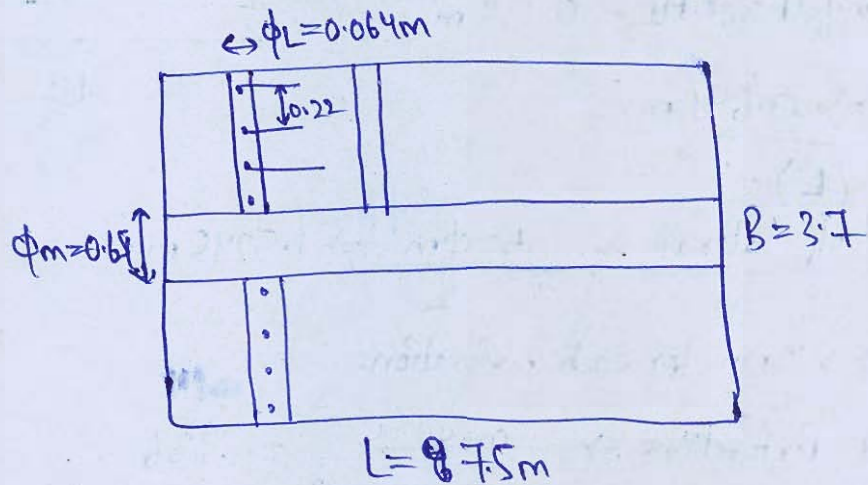 ϕL=0.064m
0.22
ϕm=0.65
B=3.7
L=7.5m